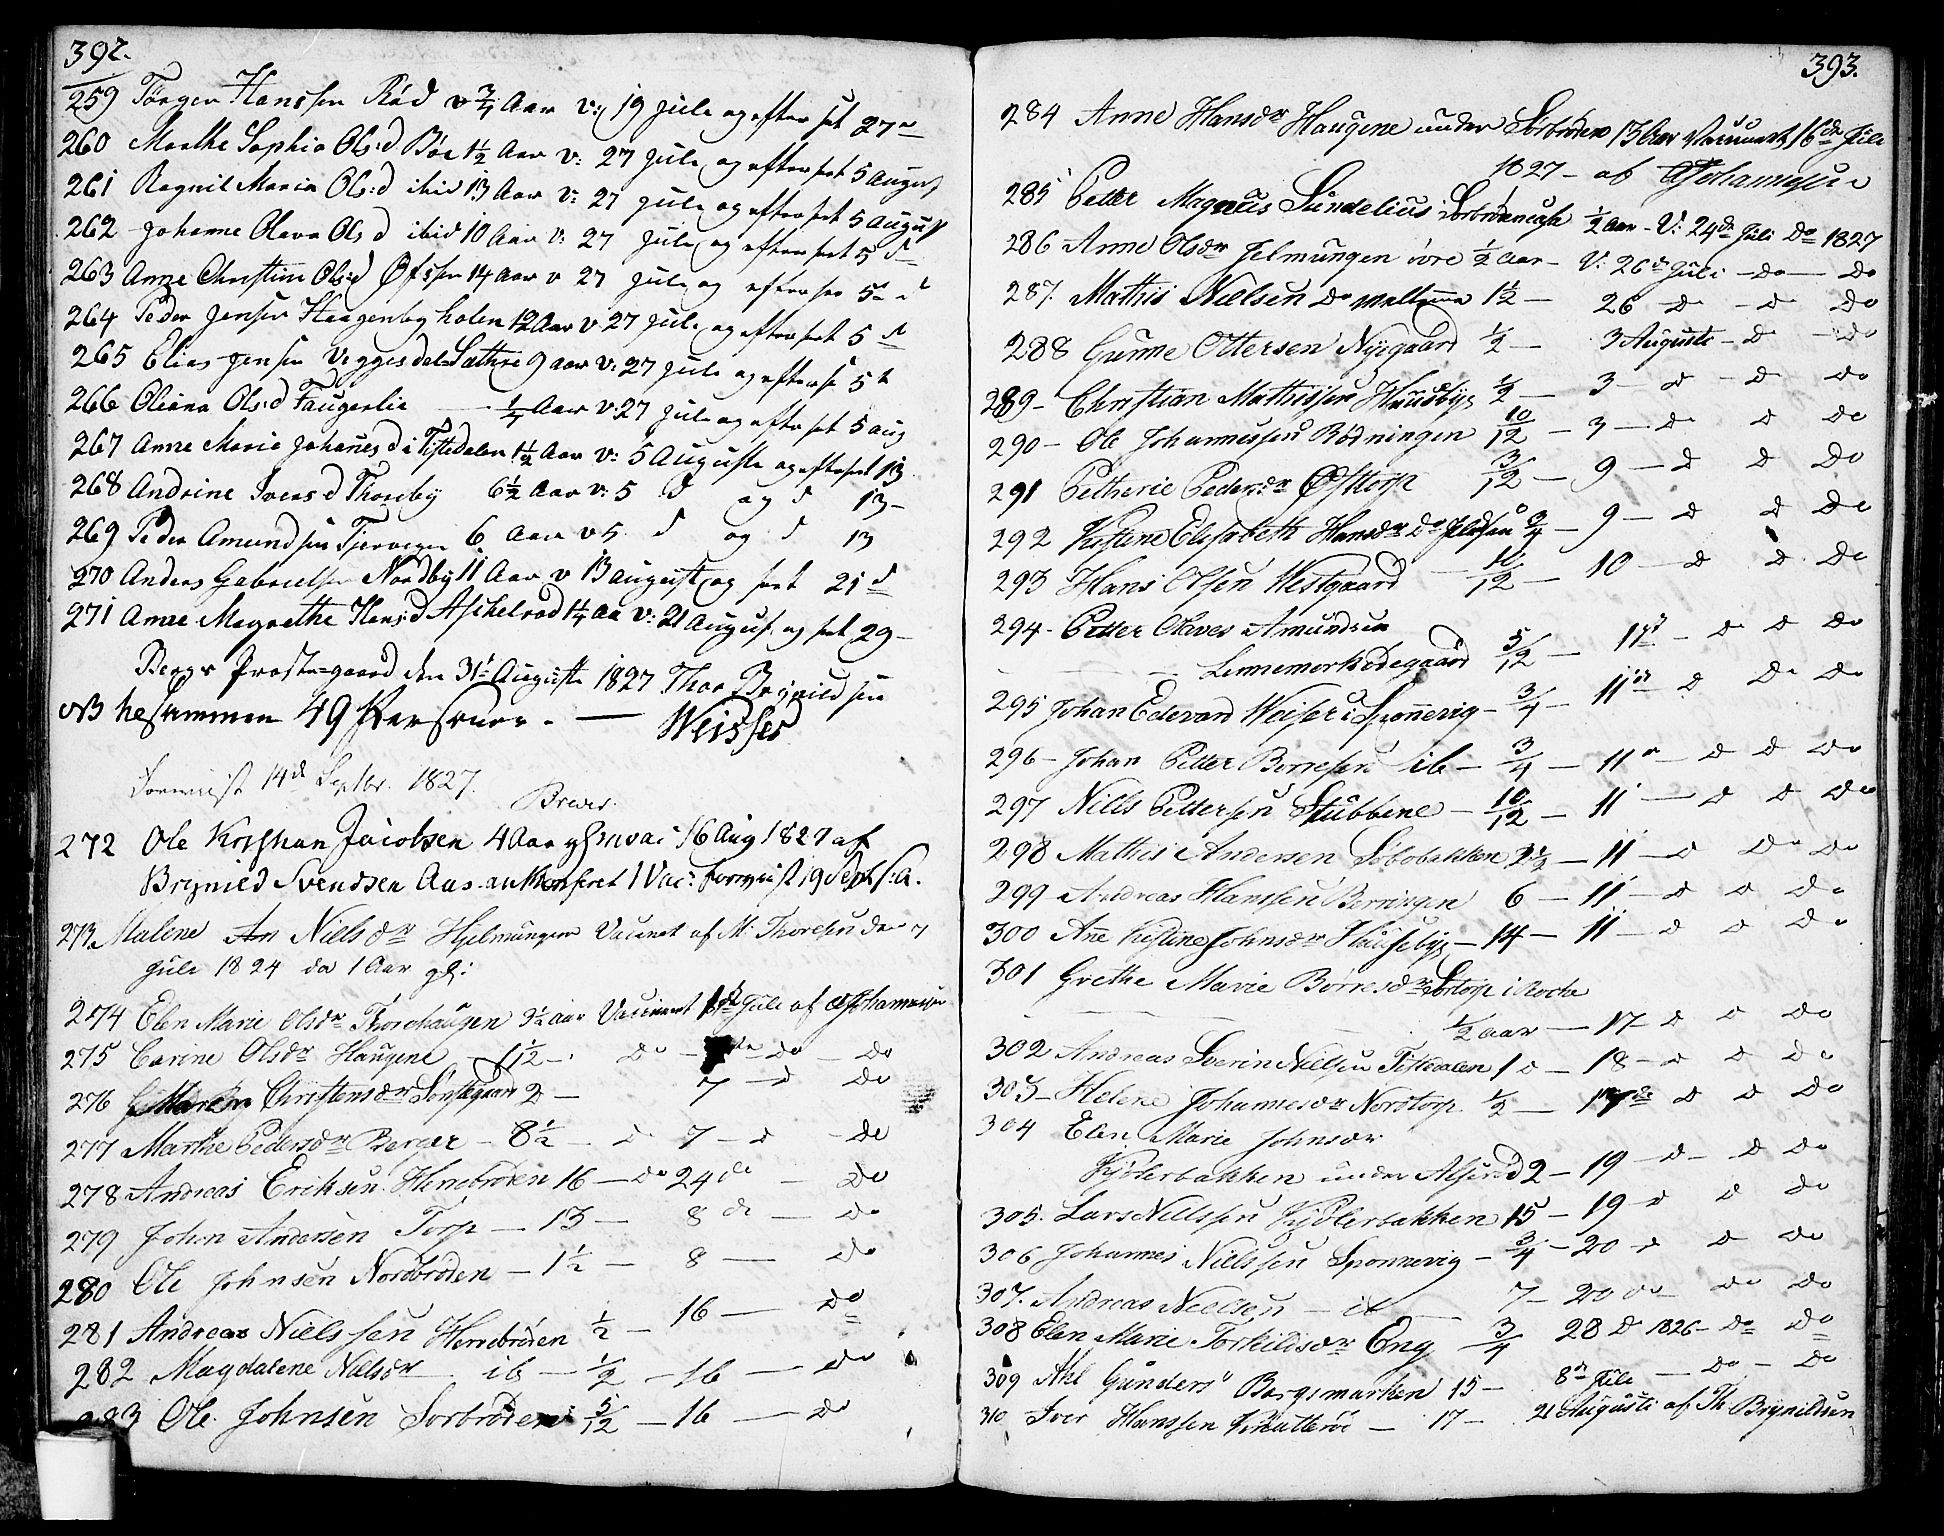 392.
259 Törger Hanssen Röd v 3/4 Aar v: 19 Jule og efter set 27 d
260 Marthe Sophia Ols:d Böe 1 1/2 Aar v: 27 Jule og efterset 5 August
261 Ragnil Maria Ols:d ibid 13 Aar v: 27 Jule og efterset 5 August
262 Johanne Olava Ols d ibid 10 Aar v: 27 Jule og efterset 5 d
263 Anne Christine Ols:d 14 Aar v 27 Jule og efterset 5 d
264 Peder Jensen Haagenbyholen 12 Aar v 27 Jule og efterset 5 d
265 Elias Jensen Veggesdal Sathre 9 aar v: 27 Jule og efterse 5 t
266 Oliana Ols:d Faugerlie — 1/4 Aar v: 27 Jule og efterset 5 aug
267 Anne Maria Johanes d i Tistedalen 1 1/2 Aar v: 5 Auguste og efterset 13
268 Andrine Ivers d Thorsby 6 1/2 Aar v: 5 d og d 13-
269 Peder Amundsen 6 Aar v 5 d og d 13
270 Anders Gabrielsen Nordby 11 Aar v 13 august og set 21 d
271 Anne Magrethe Hans:d Aschelröd 1 1/4 Aa v: 21 August og set 29-
Bergs Præstegaard den 31t Auguste 1827 Thor Brynildsen
NB 49 — Weisser
Foreviist 14d Septbr. 1827.
272 Ole Kristian Jacobsen 4 Aar vac: 16 Aug 1827 af
Brynild Svendsen Aas Vac: Foreviist 19 Sept. s:A.
273 Malene An Niels dr Hjelmungen Vacinert af M: Thoresen den 7
Jule 1824 da 1 Aar gl:
274 Elen Marie Olsdr Thorshaugen 3 1/2 aar Vacineret Jule af OJohannesen
275 Carine Olsdr Haugene — 1 1/2 — do — do — do
276 Maren Christensdr Sönstegaard 2 — 7 — d do
277 Marthe Pedersdr Berger — 8 1/2 — d 7 — d — do
278 Andreas Eriksen Herrebröden 16 — do 24 de — do
279 Johan Andersen Torp — 13 — 8 de — do
280 Ole Johnsen Nordbröden — 1 1/2 — 8 — do
281 Andreas Nielssen Herrebröden 1/2 — 16 — do
282 Magdalene Nielsdr ib — 1/2 — 16 — do
283 Ole Johnsen Sorbröden 5/12 — 16 — do
393.
284 Anne Hansdr Haugene under Sörbröden 13 Aar Vacinert 16de Jule
1827 — af OJohannesen
285 Petter Magnus Sundelius 1/2 aar — V: 24de Juli do 1827
286 Anne Olsdr Jelmungen övre 1/2 aar — V: 26de Juli — do — do
287. Mathis Nielsen do 1 1/2 — 26 — d — d do
288 Gunne Ottersen Nygaard 1/2 — 3 Auguste — d — do
289 — Christian Mathissen Huusbye 1/2 — 3 — d — d — do
290 — Ole Johannessen Rödningen 10/12 — 3 — d d do
291 Petherie Pedersdr Österp 3/12 — 9 — d d do
292 Kistine Elisabeth Hansdr do 3/4 — 9 — d d do
293 Hans Olsen Westgaard 10/12 — 10 — d d do
294. Petter Olaves Amundsen
— Lennemork ödegaard 5/12 — 11 d — d d do
295 Johan Edevard Weiser i Sponnevig — 3/4 — 11 de d do do
296 — Johan Petter Borresen ib — 3/4 — 11 — d d do
297 Nills Pettersen Stubbene — 10/12 — 11 — d d do
298 Mathis Andersen Löbobakken 3 1/2 — 11 — d do do
299 — Andreas Hanssen Berringen 6 — 11 — d d do
300 Ane Kistine Johnsdr Huusebye — 14 — 11 — d d do
301 Grethe Marie Börresdr Sörtorp i Rocke
— 1/2 aar — 17 d d do
302 Andreas Severin Nielsen Tistedalen 10 — 18 — d d do
303 — Helene Johannesdr Nordtorp 1/2 — 17 de d d do
304 Elen Marie Johnsdr
Kjölerbakken under Asperöd 2 — 19 — d — d do
305. Lars Nillssen Kjölerbakken 15 — 19 d d do
306 Johannes Nielssen Sponnevig — 3/4 — 20 d d do
307. Andreas Nielsen — ib — 7 — 20 do do do
308 Elen Marie Torkildsdr Eng 3/4 28 d 1826 — do do
309 Ahl Gunders Bergsmarken 15 — 8de Jule — do — do
310 Iver Hanssen 17 — 21 Auguste af Th Brynildsen